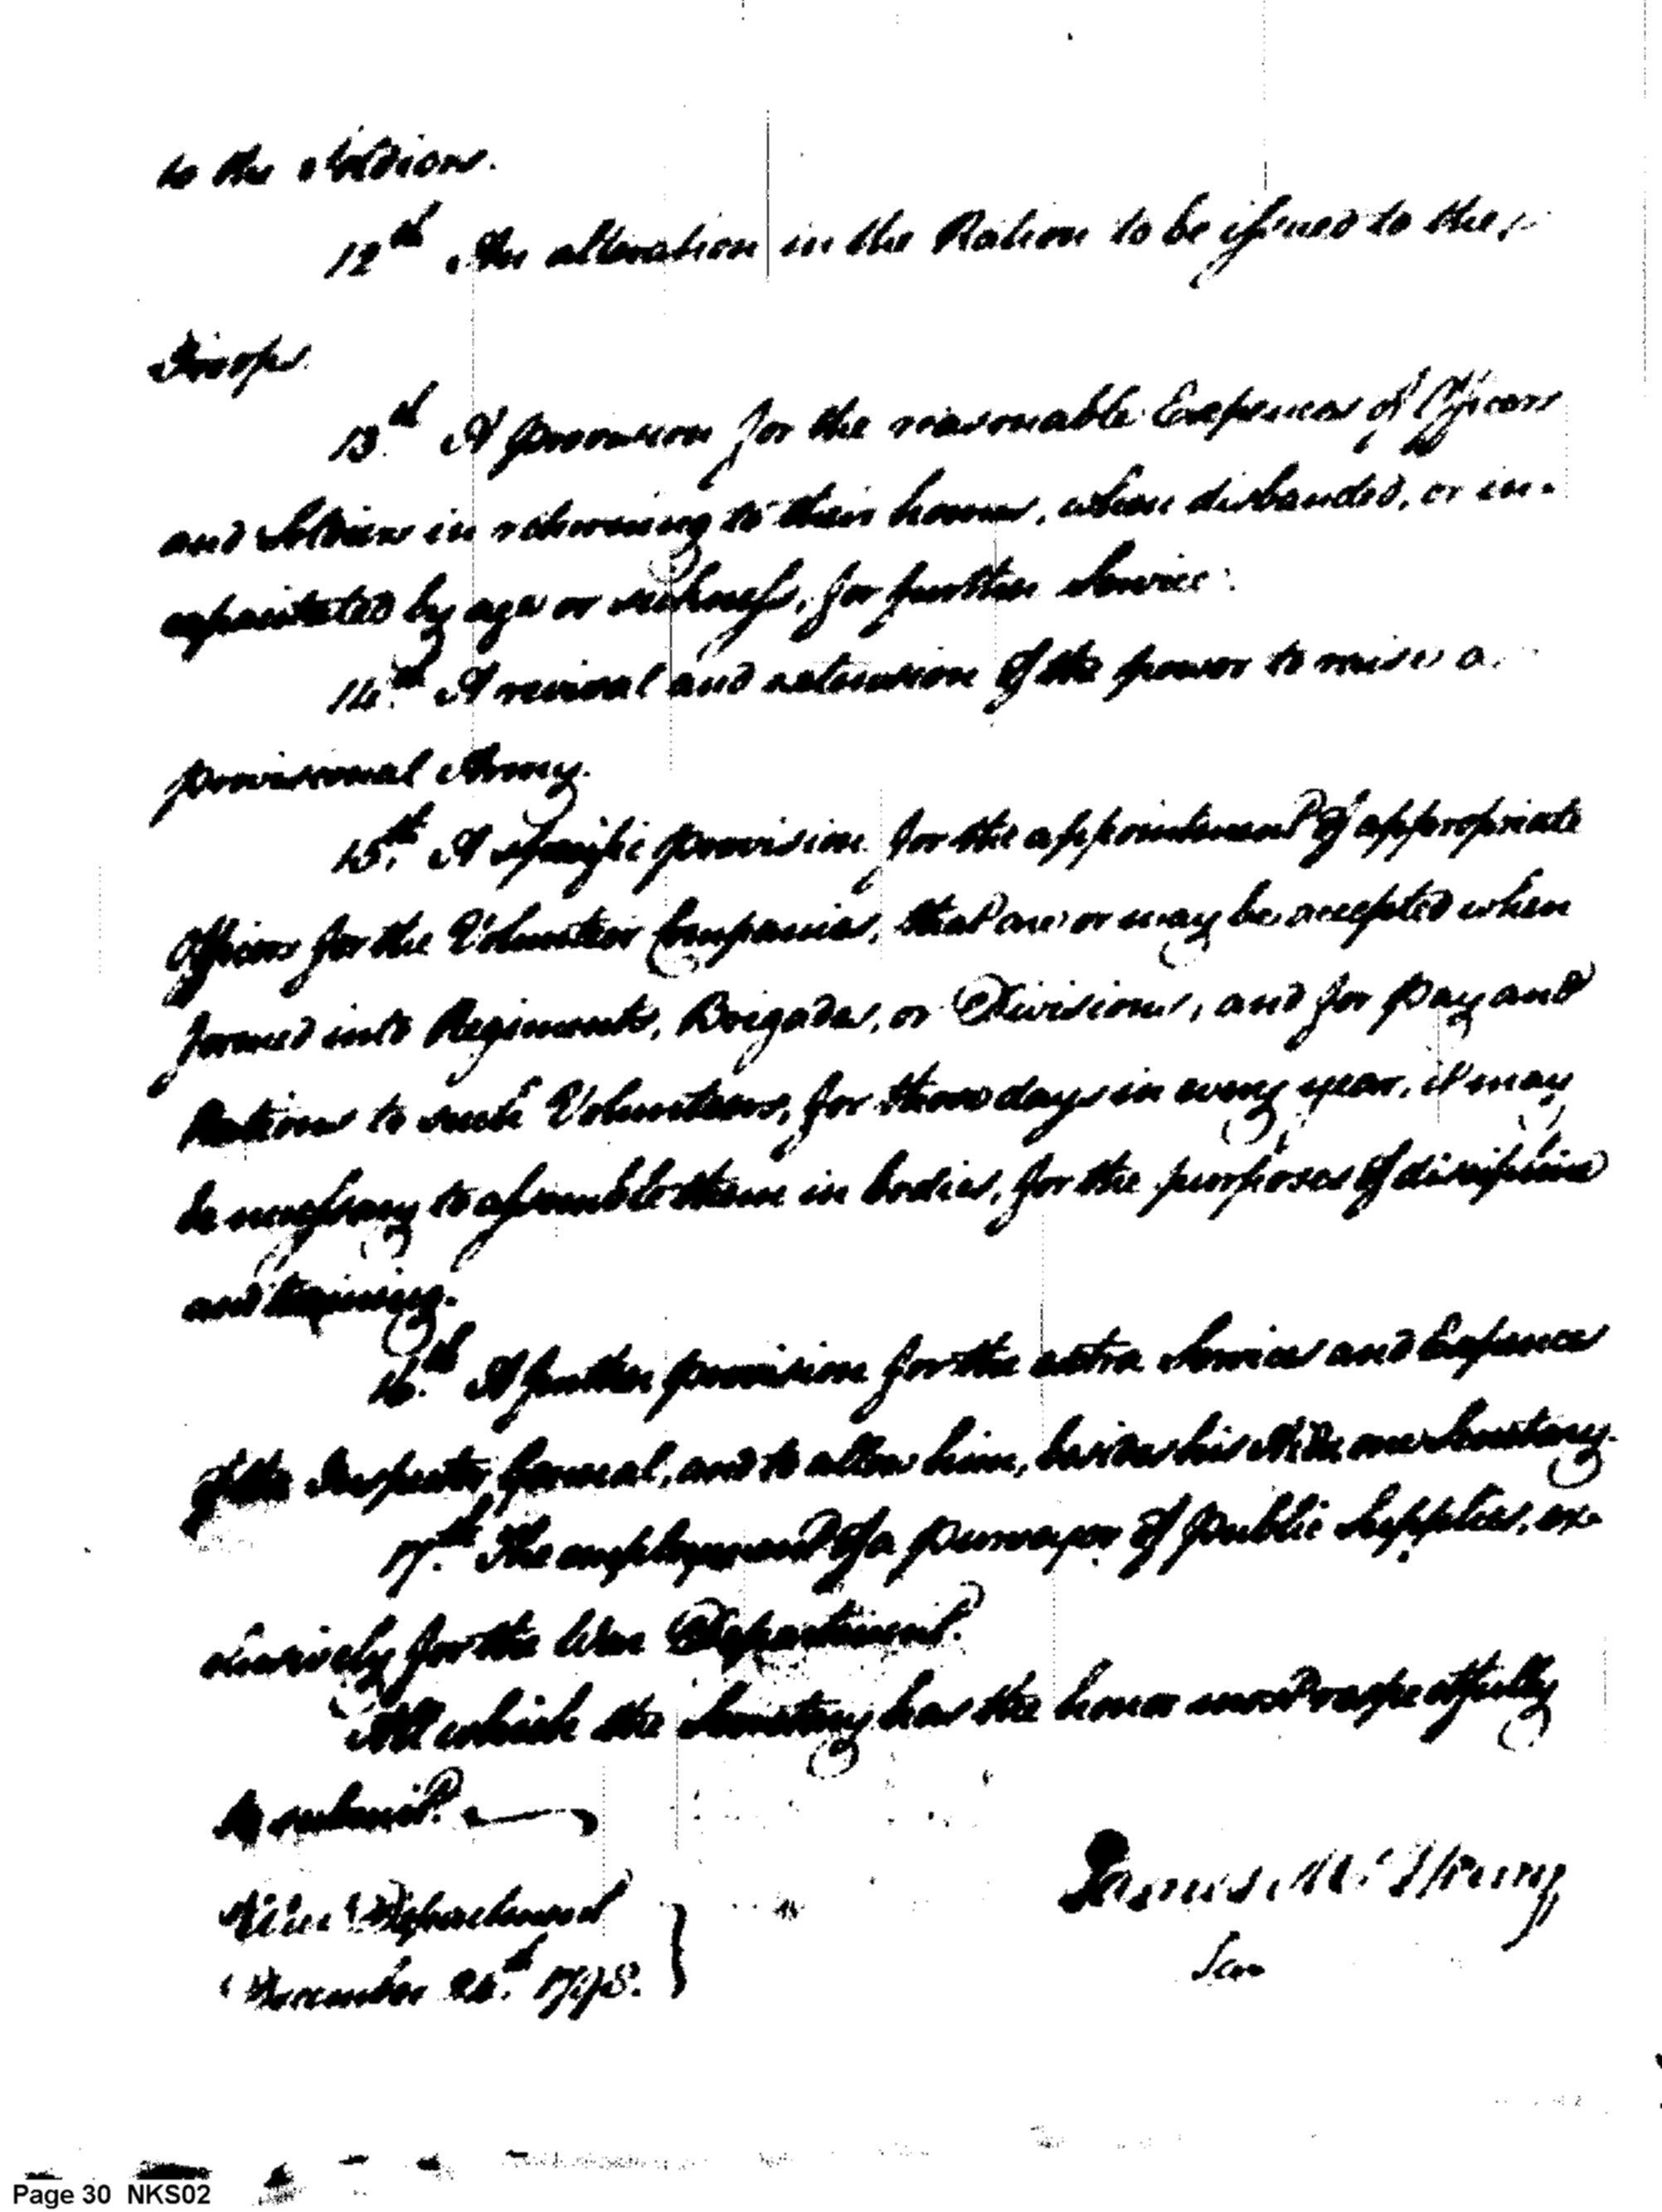 to the Soldiers.
12th An alteration in the Ration to be issued to the
Troops.
13th A provision for the reasonable Expences of Officers
and Soldiers in returning to their homes, when disbanded, or in-
capacitated by age or sickness, for further Service.
14th A revival and extension of the power to raise a
provisional Army.
15th A specific provision for the appointment of appropriate
Officers for the Volunteer Companies, that are or may be accepted when
formed into Regiments, Brigades, or Divisions, and for pay and
Rations to such Volunteers, for those days in every year, it may
be necessary to assemble them in bodies, for the purposes of discipline
and training.
16th A further provision for the extra Services and Expences
of the Inspector General, and to allow him, besides his Aids, one Secretary.
17th The employment of a purveyor of public Supplies, ex-
clusively for the War Department.
All which the Secretary has the honor most respectfully
to submit.
War Department
December 24th 1798.
James McHenry
Page 30 NKS02